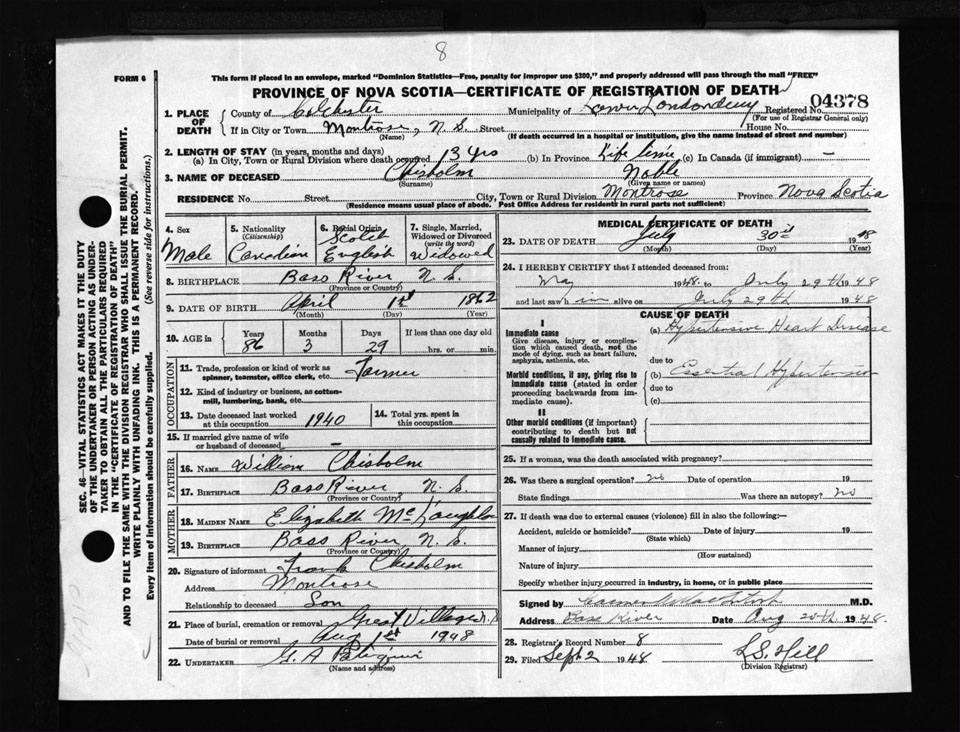 8
FORM 6
This form if placed in an envelope, marked "Dominion Statistics—Free, penalty for improper use $300," and properly addressed will pass through the mail "FREE"
PROVINCE OF NOVA SCOTIA—CERTIFICATE OF REGISTRATION OF DEATH
04378
1. PLACE OF DEATH
County of Colchester Municipality of Lower Londonderry Registered No.
(For use of Registrar General only)
If in City or Town Montrose, N.S. Street House No.
(Name) (If death occurred in a hospital or institution, give the name instead of street and number)
2. LENGTH OF STAY (in years, months and days)
(a) In City, Town or Rural Division where death occurred 13 yrs (b) In Province Life time (c) In Canada (if immigrant) —
3. NAME OF DECEASED Chisholm Noble
(Surname) (Given name or names)
RESIDENCE No. Street City, Town or Rural Division Montrose Province Nova Scotia
(Residence means usual place of abode. Post Office Address for residents in rural parts not sufficient)
4. Sex
Male
5. Nationality
(Citizenship)
Canadian
6. Racial Origin
Scotch
English
7. Single, Married, Widowed or Divorced
(write the word)
Widowed
8. BIRTHPLACE Bass River N.S.
(Province or Country)
9. DATE OF BIRTH April 1st 1862
(Month) (Day) (Year)
10. AGE in
Years Months Days If less than one day old
86 3 29 hrs. or min.
OCCUPATION
11. Trade, profession or kind of work as spinner, teamster, office clerk, etc. Farmer
12. Kind of industry or business, as cotton-mill, lumbering, bank, etc.
13. Date deceased last worked at this occupation 1940
14. Total yrs. spent in this occupation
15. If married give name of wife or husband of deceased —
FATHER
16. NAME William Chisholm
17. BIRTHPLACE Bass River, N.S.
(Province or Country)
MOTHER
18. MAIDEN NAME Elizabeth McLaughlin
19. BIRTHPLACE Bass River, N.S.
(Province or Country)
20. Signature of informant Frank Chisholm
Address Montrose
Relationship to deceased Son
21. Place of burial, cremation or removal Great Village N.S.
Date of burial or removal Aug 1st 1948
22. UNDERTAKER G. A.
MEDICAL CERTIFICATE OF DEATH
23. DATE OF DEATH July 30th 1948
(Month) (Day) (Year)
24. I HEREBY CERTIFY that I attended deceased from:
May 1948 to July 29th 1948
and last saw him alive on July 29th 1948
CAUSE OF DEATH
I
Immediate cause
Give disease, injury or complication which caused death, not the mode of dying, such as heart failure, asphyxia, asthenia, etc.
(a) Hypertensive Heart Disease
due to
Morbid conditions, if any, giving rise to immediate cause (stated in order proceeding backwards from immediate cause).
(b) Essential Hypertension
due to
(c)
II
Other morbid conditions (if important) contributing to death but not causally related to immediate cause.
25. If a woman, was the death associated with pregnancy?
26. Was there a surgical operation? no Date of operation 19
State findings Was there an autopsy? no
27. If death was due to external causes (violence) fill in also the following:—
Accident, suicide or homicide? Date of injury 19
(State which)
Manner of injury
(How sustained)
Nature of injury
Specify whether injury occurred in industry, in home, or in public place
Signed by M.D.
Address Bass River Date Aug 20th 1948.
28. Registrar's Record Number 8
29. Filed Sept 2 1948 L.S. Hill
(Division Registrar)
SEC. 46—VITAL STATISTICS ACT MAKES IT THE DUTY
OF THE UNDERTAKER OR PERSON ACTING AS UNDER-
TAKER TO OBTAIN ALL THE PARTICULARS REQUIRED
IN THE "CERTIFICATE OF REGISTRATION OF DEATH"
AND TO FILE THE SAME WITH THE DIVISION REGISTRAR WHO SHALL ISSUE THE BURIAL PERMIT.
WRITE PLAINLY WITH UNFADING INK. THIS IS A PERMANENT RECORD.
Every item of information should be carefully supplied. (See reverse side for instructions.)